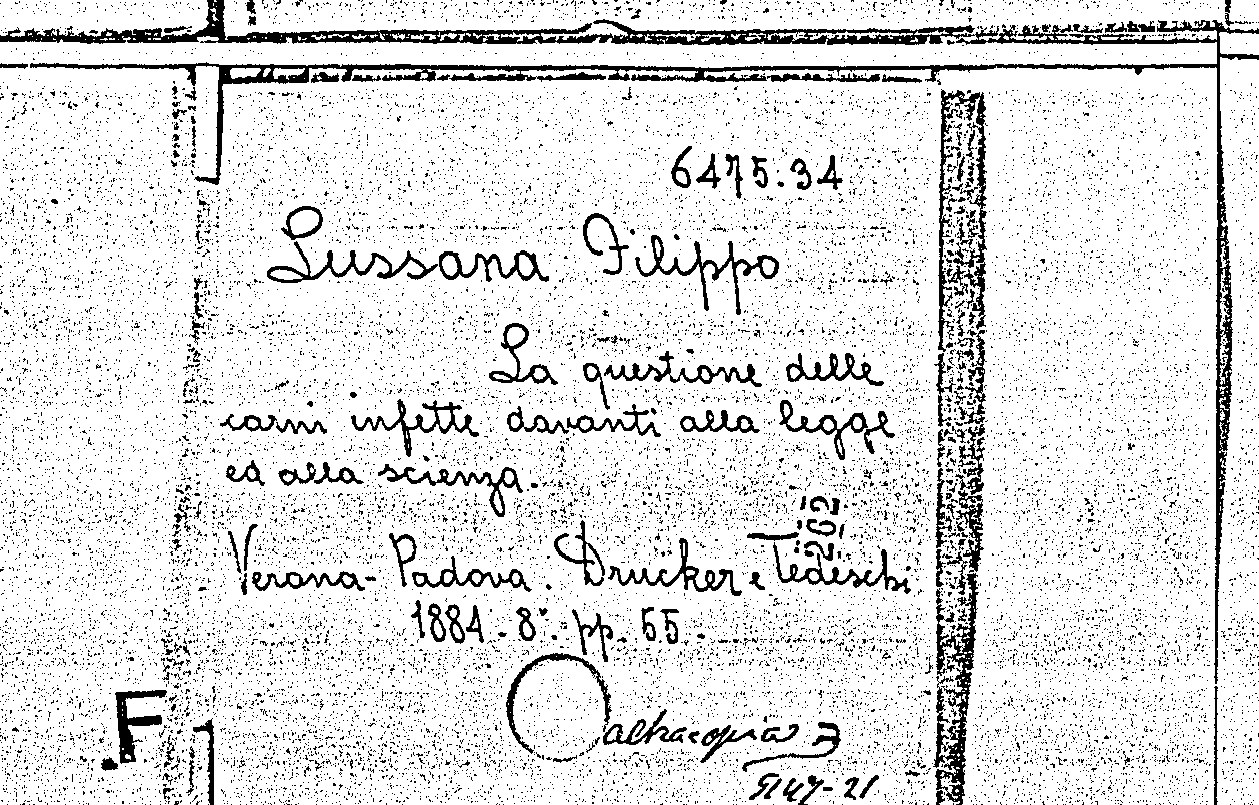 6475.34
Lussana Filippo
La questione delle
carni infette davanti alla legge
ed alla scienza.
Verona-Padova. Drucker e Tedeschi
262
1884. 8°. pp. 55.
altra copia
F